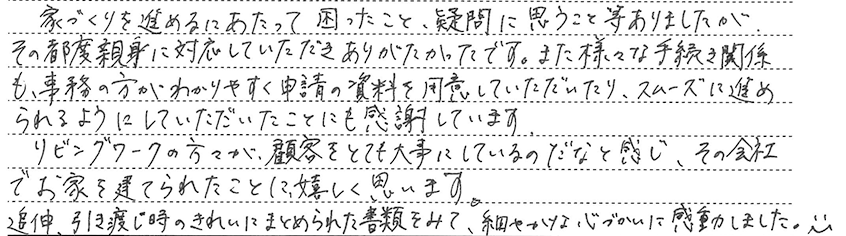 家づくりを進めるにあたって困ったこと、疑問に思うこと等ありましたが、
その都度親身に対応していただきありがたかったです。また様々な手続き関係
も、事務の方がわかりやすく申請の資料を用意していただいたり、スムーズに進め
られるようにしていただいたことにも感謝しています。
リビングワークの方々が、顧客をとても大事にしているのだなと感じ、その会社
でお家を建てられたことに、嬉しく思います。
追伸、引き渡し時のきれいにまとめられた書類をみて、細やかな心づかいに感動しました。